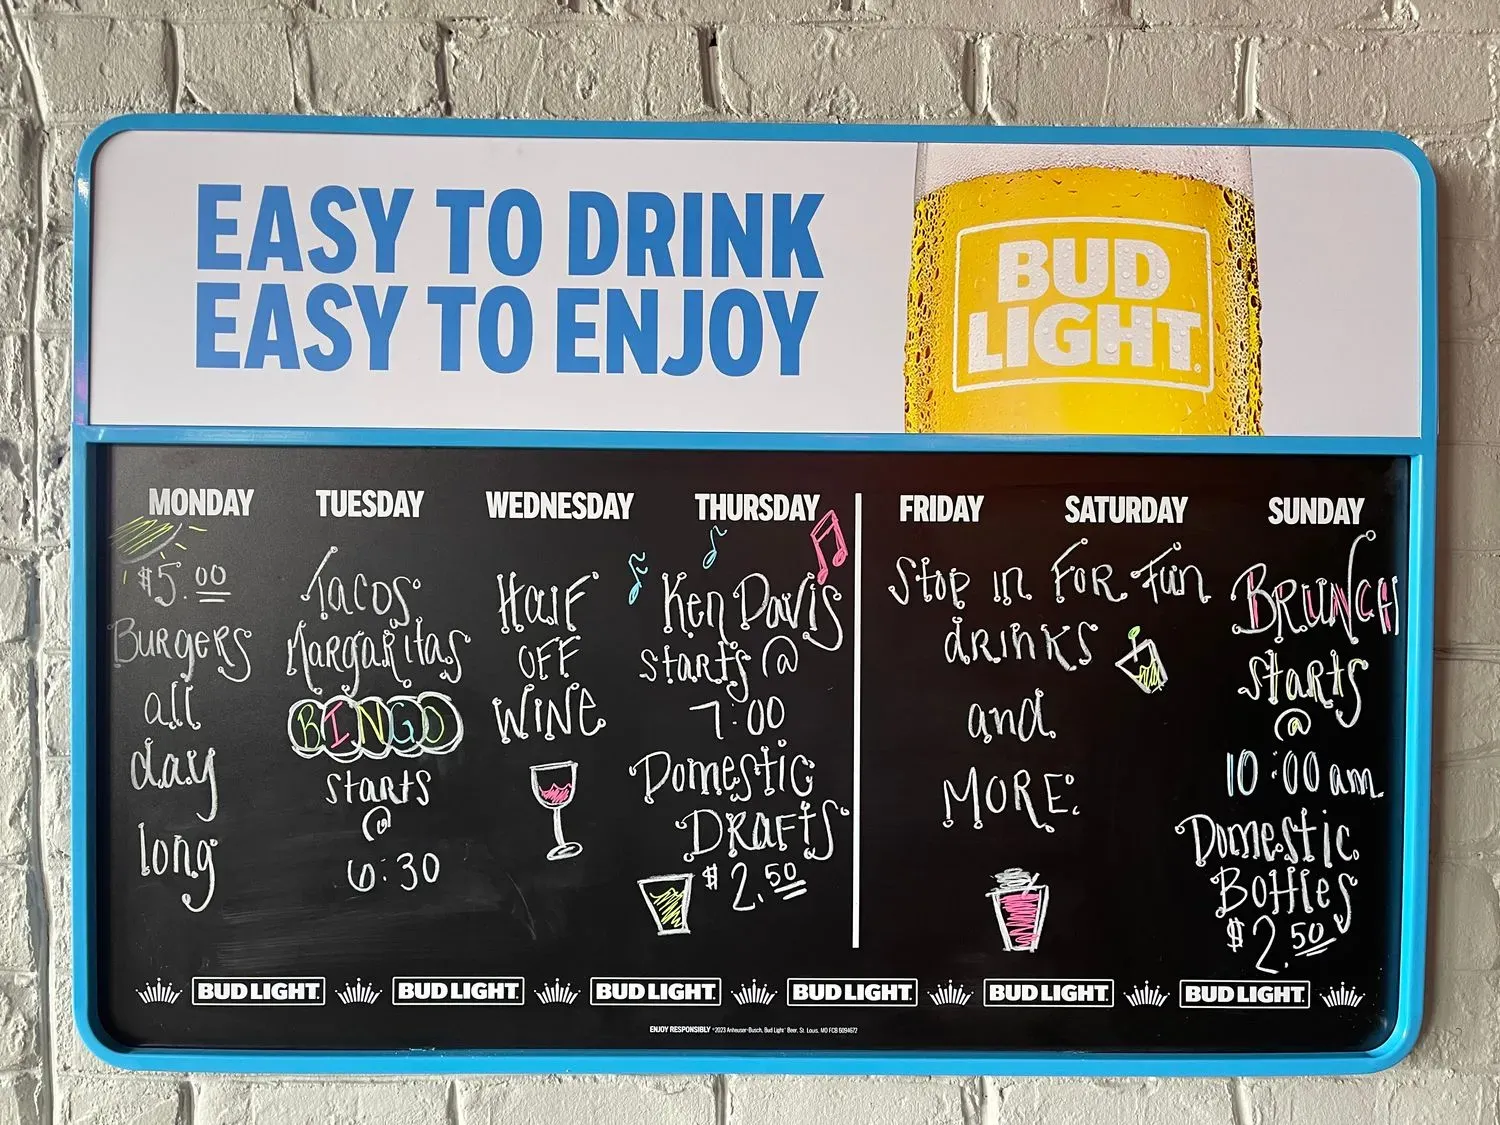 EASY TO DRINK
EASY TO ENJOY
BUD
LIGHT.
MONDAY
$5.00
Burgers
all
day
long
TUESDAY
Tacos
Margaritas
BINGO
starts
@
6:30
WEDNESDAY
Half
OFF
WINE
THURSDAY
Ken Davis
starts @
7:00
Domestic
DRAFTS
$2.50
FRIDAY SATURDAY
Stop in For Fun
drinks
and
MORE.
SUNDAY
BRUNCH
starts
@
10:00 am
Domestic
Bottles
$2.50
BUD LIGHT. BUD LIGHT. BUD LIGHT. BUD LIGHT. BUD LIGHT. BUD LIGHT.
ENJOY RESPONSIBLY ©2023 Anheuser-Busch, Bud Light® Beer, St. Louis, MO FCB 6094672